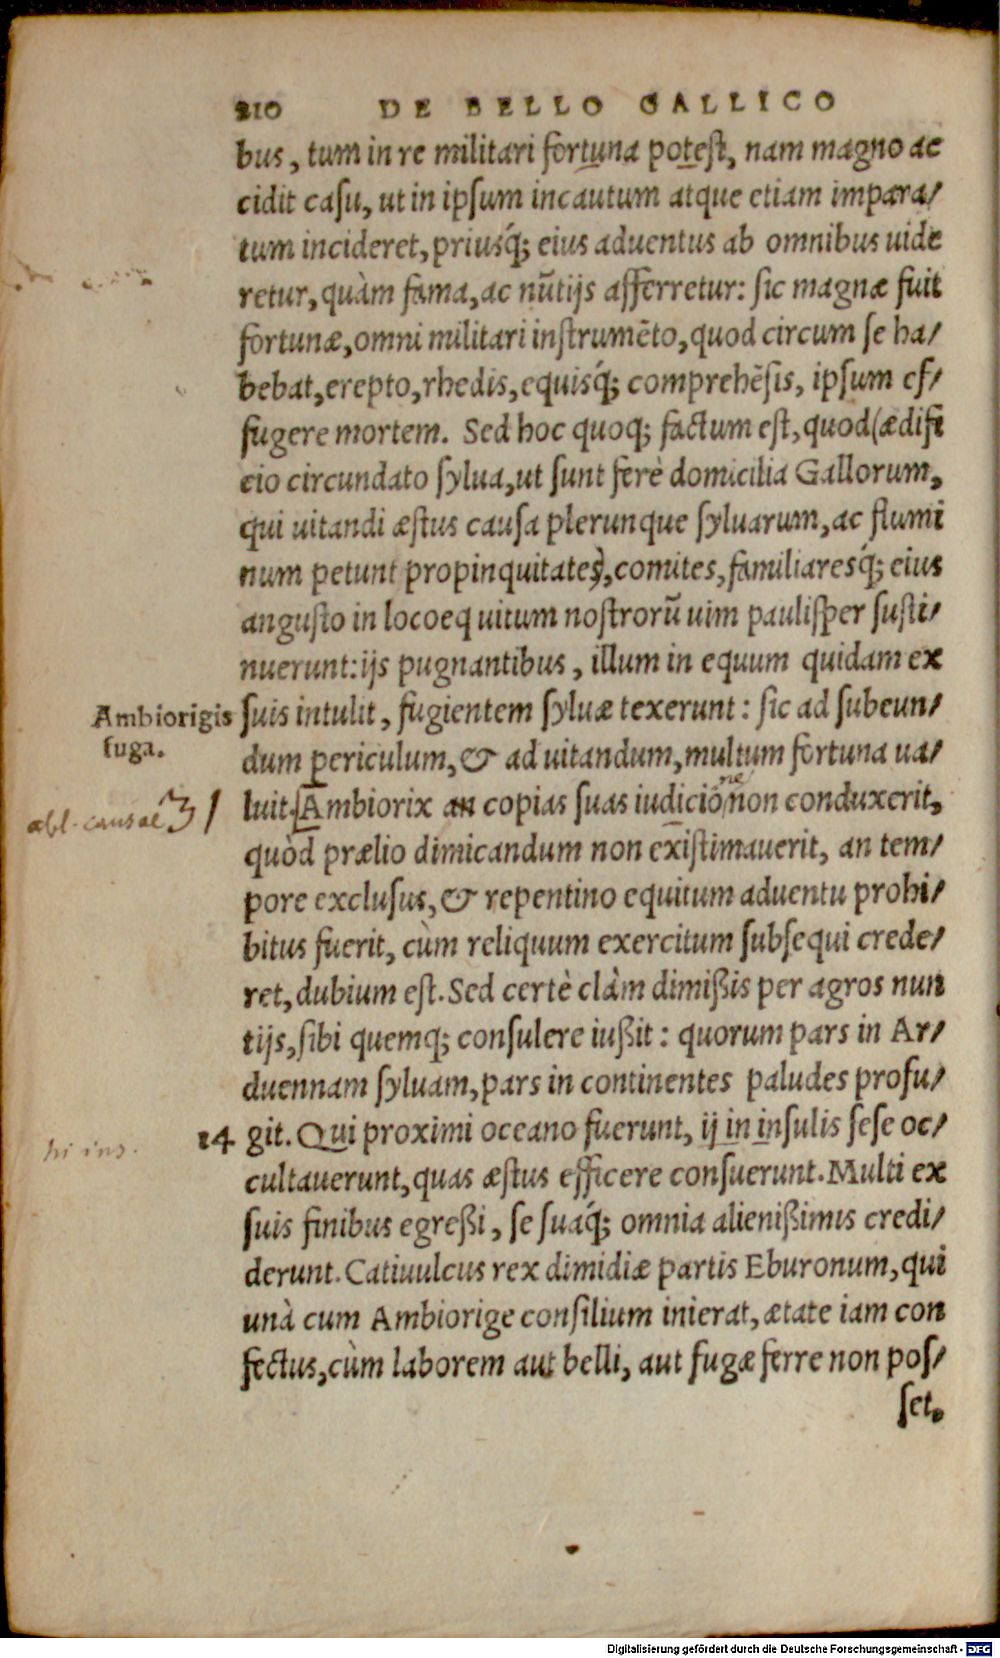 210 DE BELLO GALLICO
bus, tum in re militari fortuna potest, nam magno ac
cidit casu, ut in ipsum incautum atque etiam impara/
tum incideret, priusq́; eius aduentus ab omnibus uide
retur, quàm fama, ac nūtijs afferretur: sic magnæ fuit
fortunæ, omni militari instrumēto, quod circum se ha/
bebat, erepto, rhedis, equisq́; comprehēsis, ipsum ef/
fugere mortem. Sed hoc quoq; factum est, quod (ædifi
cio circundato sylua, ut sunt ferè domicilia Gallorum,
qui uitandi æstus causa plerunque syluarum, ac flumi
num petunt propinquitates), comites, familiaresq́; eius
angusto in locoeq uitum nostrorū uim paulisper susti/
nuerunt: ijs pugnantibus, illum in equum quidam ex
Ambiorigis suis intulit, fugientem syluæ texerunt: sic ad subeun/
fuga. dum periculum, & ad uitandum, multum fortuna ua/
abl. causae 31 luit. [Ambiorix an copias suas iudiciōne non conduxerit,
quòd prælio dimicandum non existimauerit, an tem/
pore exclusus, & repentino equitum aduentu prohi/
bitus fuerit, cùm reliquum exercitum subsequi crede/
ret, dubium est. Sed certè clàm dimißis per agros nun
tijs, sibi quemq; consulere iußit: quorum pars in Ar/
duennam syluam, pars in continentes paludes profu/
hi ins. 24 git. Qui proximi oceano fuerunt, ij in insulis sese oc/
cultauerunt, quas æstus efficere consuerunt. Multi ex
suis finibus egreßi, se suaq́; omnia alienißimis credi/
derunt. Catiuulcus rex dimidiæ partis Eburonum, qui
unà cum Ambiorige consilium inierat, ætate iam con
fectus, cùm laborem aut belli, aut fugæ ferre non pos/
set.
Digitalisierung gefördert durch die Deutsche Forschungsgemeinschaft - DFG